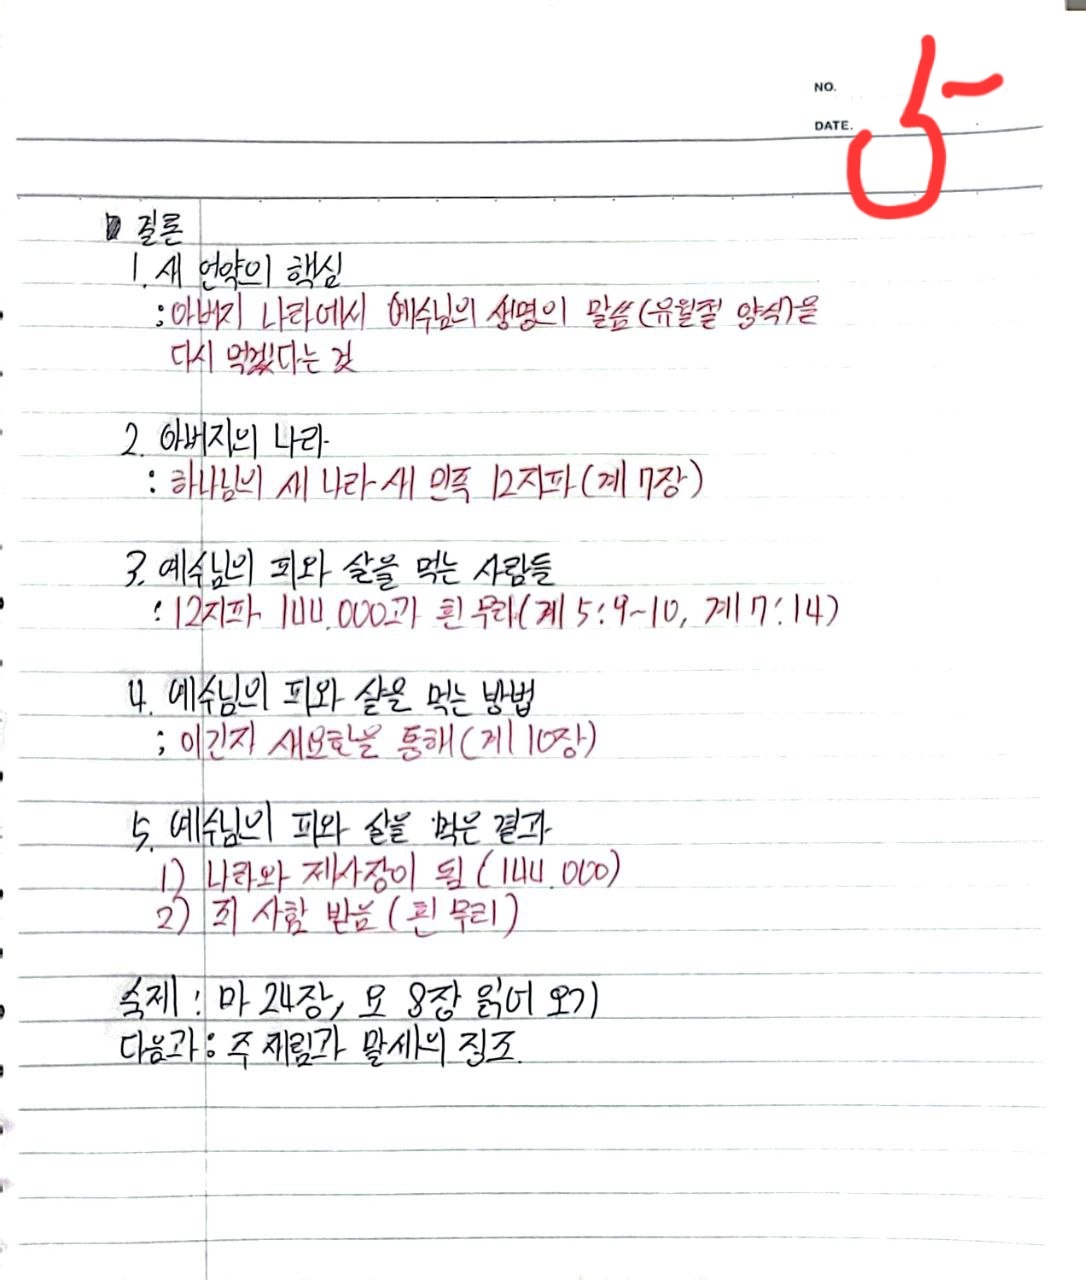 NO.
DATE.
5-
결론
1. 새 언약의 핵심
: 아버지 나라에서 예수님의 생명의 말씀(유월절 양식)을
다시 먹겠다는 것
2. 아버지의 나라
: 하나님의 새 나라 새 민족 12지파(계 7장)
3. 예수님의 피와 살을 먹는 사람들
: 12지파 144,000과 흰 무리(계 5:9~10, 계 7:14)
4. 예수님의 피와 살을 먹는 방법
; 이긴자 새요한을 통해(계 10장)
5. 예수님의 피와 살을 먹은 결과
1) 나라와 제사장이 됨(144.000)
2) 죄 사함 받음(흰 무리)
숙제: 마 24장, 요 8장 읽어 오기
다음과: 주 재림과 말세의 징조.